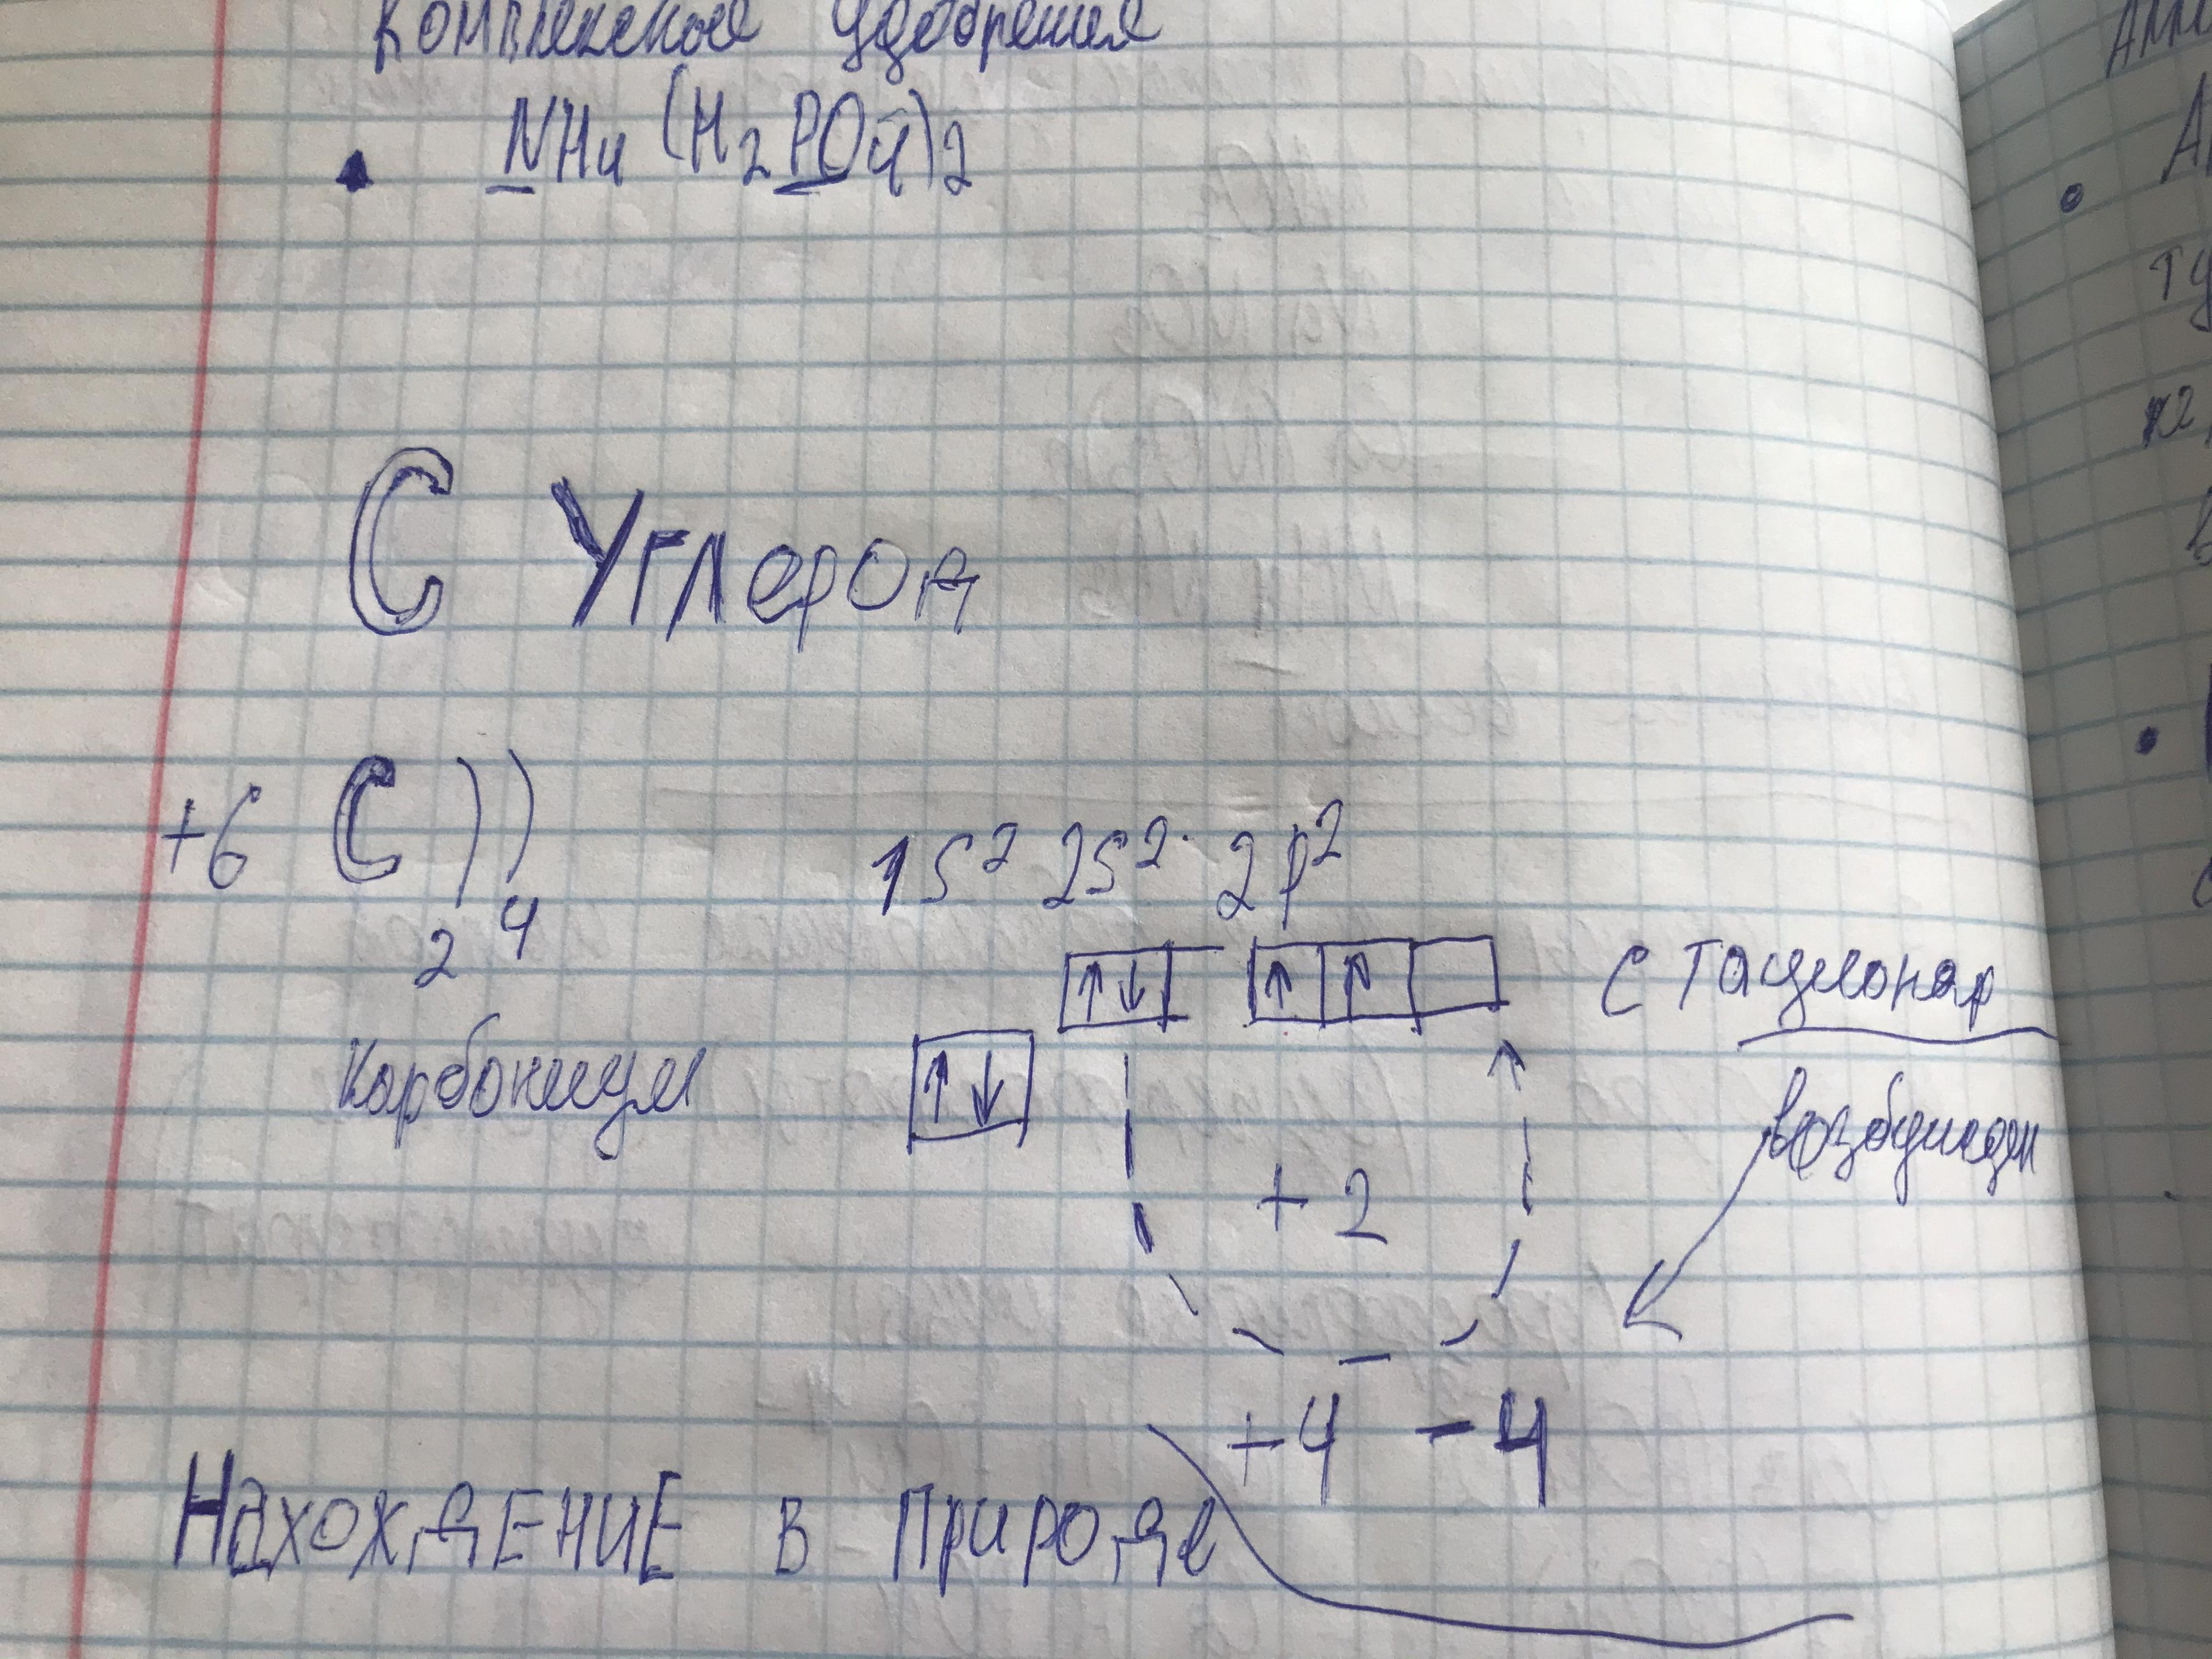 Комплексные удобрения
NH4 (H2PO4)2
С Углерод
+6 C ))
2 4
1s² 2s² 2p²
↑↓ ↑ ↑
стационар
Карбониум
↑↓
возбужден
+2
+4 -4
НАХОЖДЕНИЕ в природе